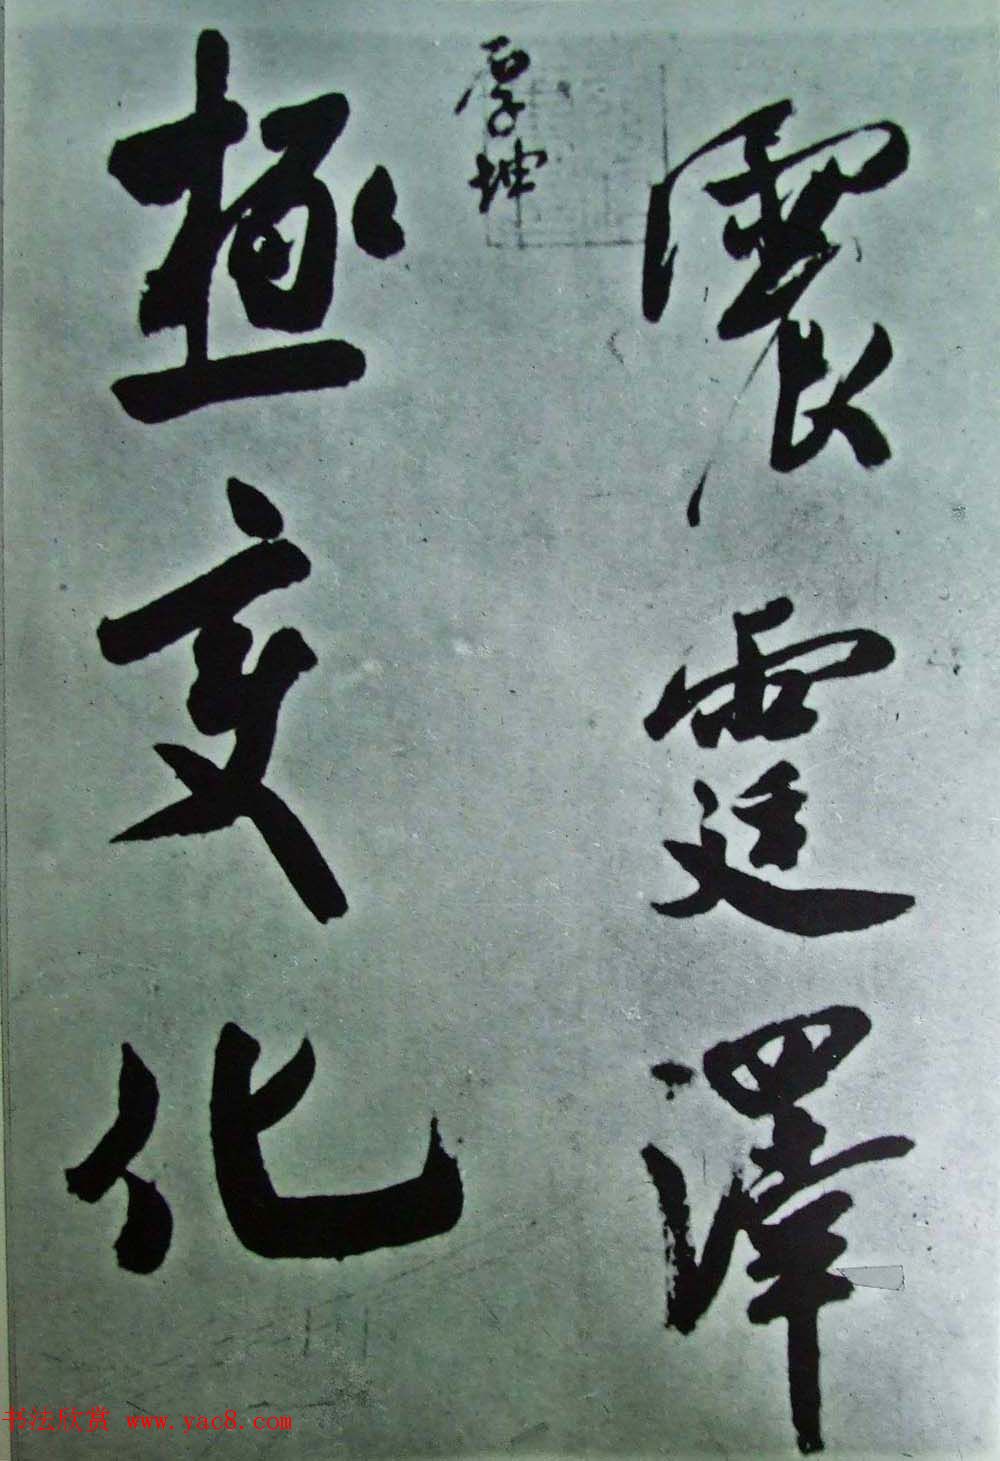 震霆澤
厚坤
極变化
书法欣赏 www.yac8.com